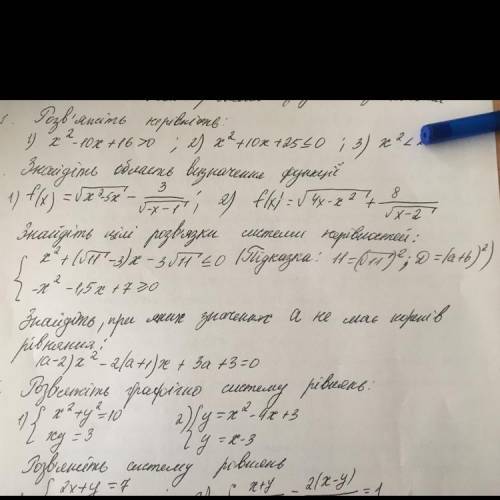 Розв'яжіть нерівність:
1) x²-10x+16>0 ; 2) x²+10x+25≤0 ; 3) x²<
Знайдіть область визначення функції
1) f(x)=√(x²-5x) - 3/√(-x-1) ; 2) f(x)=√(4x-x²) + 8/√(x-2)
Знайдіть цілі розв'язки системи нерівностей:
{ x²+(√11-3)x-3√11≤0 (Підказка: 11=(√11)²; D=(a+b)²)
-x²-1,5x+7≥0
Знайдіть, при яких значеннях a не має коренів
рівняння:
(a-2)x²-2(a+1)x+3a+3=0
Розв'яжіть графічно систему рівнянь:
1) { x²+y²=10 2) { y=x²-4x+3
xy=3 y=x-3
Розв'яжіть систему рівнянь
{ 2x+y=7 { x+y - 2(x-y) =1